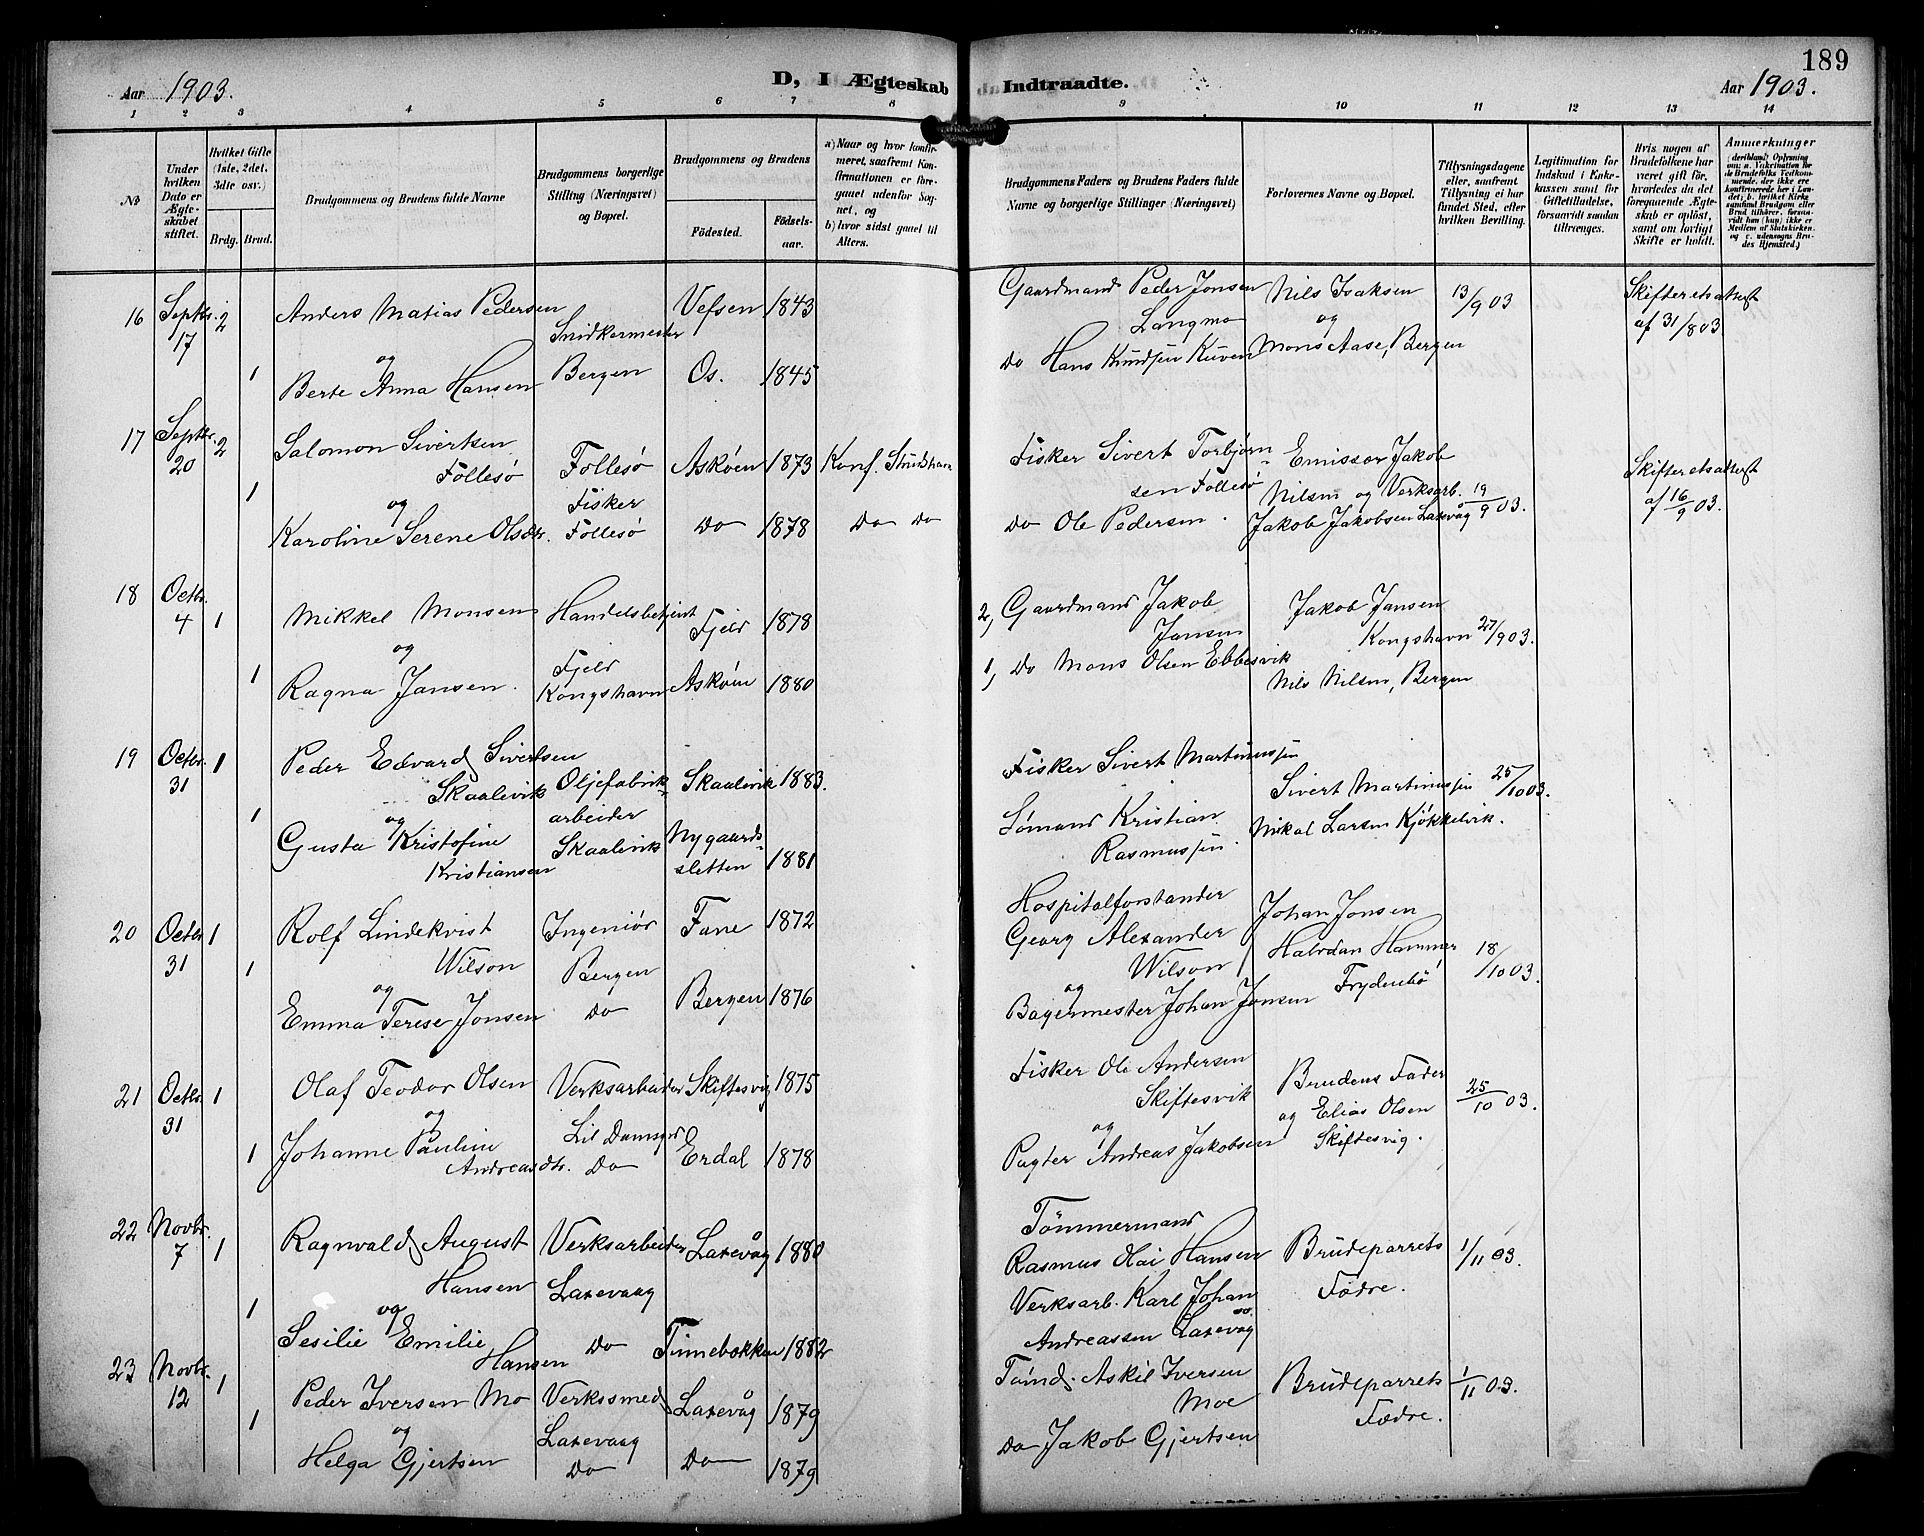 189
Aar 1903.
D, I Ægteskab Indtraadte.
Aar 1903.
1 2 3 4 5 6 7 8 9 10 11 12 13 14
No
Under hvilken Dato er Ægteskabet stiftet.
Hvilket Gifte (1ste, 2det, 3die osv.)
Brdg. Brud.
Brudgommens og Brudens fulde Navne
Brudgommens borgerlige Stilling (Næringsvei) og Bopæl.
Brudgommens og Brudens
Fødested.
Fødselsaar.
a) Naar og hvor konfirmeret, saafremt Konfirmationen er foregaaet udenfor Sognet, og
b) hvor sidst gaaet til Alters.
Brudgommens Faders og Brudens Faders fulde Navne og borgerlige Stillinger (Næringsvei)
Forlovernes Navne og Bopæl.
Tillysningsdagene eller, saafremt Tillysning ei har fundet Sted, efter hvilken Bevilling.
Legitimation for Indskud i Enkekassen samt for Giftetilladelse, forsaavidt saadan tiltrænges.
Hvis nogen af Brudefolkene har været gift før, hvorledes da det foregaaende Ægteskab er opløst, samt om lovligt Skifte er holdt.
Anmerkninger
(deriblandt Oplysning om: a. Vakcination for de Brudefolks Vedkommende, der ikke ere konfirmerede her i Landet; b. hvilket Kirkesamfund Brudgom eller Brud tilhører, forsaavidt han (hun) ikke er Medlem af Statskirken, og c. udensogns Brudes Hjemsted.)
16 Septbr. 17 2 Anders Matias Pedersen Snidkermester Vefsen 1843 Gaardmand Peder Jonsen Langmo Nils Isaksen 13/9 03 Skifteretsattest af 31/8 03
og
1 Berte Anna Hansen Bergen Os. 1845 Do Hans Knudsen Kuven og Mons Aase, Bergen
17 Septbr. 20 2 Salomon Sivertsen Follesø Follesø Askøen 1873 Konf. Strudshavn Fisker Sivert Torbjørnsen Follesø Emissær Jakob Nilsen og Verksarb. 19/9 03. Skifteretsattest af 16/9 03.
og Fisker
1 Karoline Serene Olsdtr. Follesø Do 1878 Do Do Do Ole Pedersen. Jakob Jakobsen Laxevåg
18 Octbr. 4 1 Mikkel Monsen Handelsbetjent Fjeld 1878 2, Gaardmand Jakob Jansen Jakob Jansen Kongshavn 27/9 03.
og Fjeld
1 Ragna Jansen. Kongshavn Askøen 1880 1, Do Mons Olsen Ebbesvik Nils Nilsen, Bergen
19 Octbr. 31 1 Peder Edvard Sivertsen Skaalevik Oljefabrik-arbeider Skaalevik 1883. Fisker Sivert Martinussen Sivert Martinussen 25/10 03.
og
1 Gusta Kristofine Kristiansen Skaalevik Nygaards-sletten 1881 Sømand Kristian Rasmussen. Nikal Larsen Kjøkkelvik.
20 Octbr 31 1 Rolf Lindekvist Wilson Ingeniør Bergen Fane 1872 Hospitalforstander Georg Alexander Wilson Johan Jonsen Halvdan Hammer Frydenbø 18/10 03.
og og
1 Emma Terese Jonsen Do Bergen 1876 Bagermester Johan Jonsen
21 Octbr. 31 1 Olaf Teodor Olsen Verksarbeider Skiftesvig 1875 Fisker Ole Andersen Skiftesvik Brudens Fader og Elias Olsen Skiftesvig. 25/10 03.
og Lil Damsgrd og
1 Johanne Pauline Andreasdtr. Do Erdal 1878 Pagter Andreas Jakobsen
22 Novbr. 7 1 Ragnvald August Hansen Verksarbeider Laxevaag Laxevåg 1880 Tömmermand Rasmus Olai Hansen Brudeparrets Fædre. 1/11 03.
og
1 Sesilie Emilie Hansen Do Tinnebakken 1882 Verksarb. Karl Johan Andreassen Laxevåg
23 Novbr. 12 1 Peder Iversen Mo Verkssmed Laxevåg 1879 Tömd. Askil Iversen Moe Brudeparrets Fædre. 1/11 03.
og Laxevaag
1 Helga Gjertsen Do Do 1879 Do Jakob Gjertsen